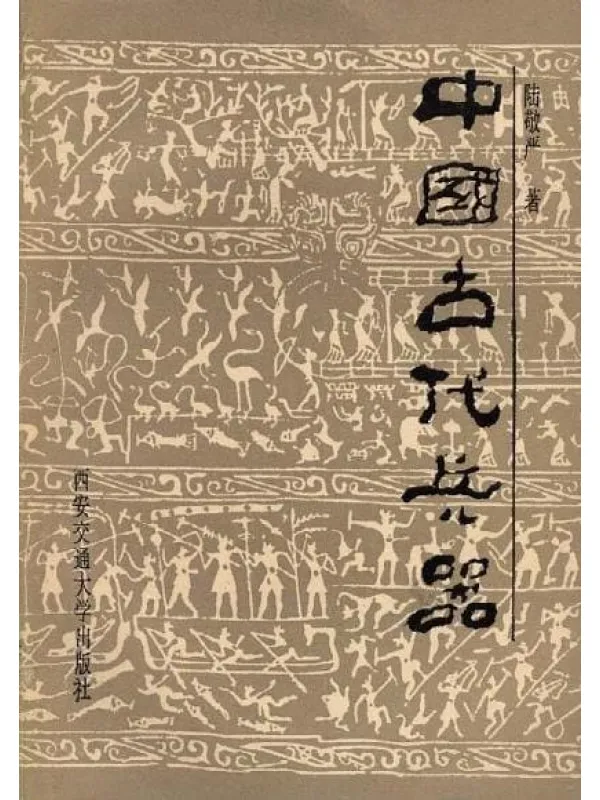 陆敬严 著
中國古代兵器
西安交通大学出版社